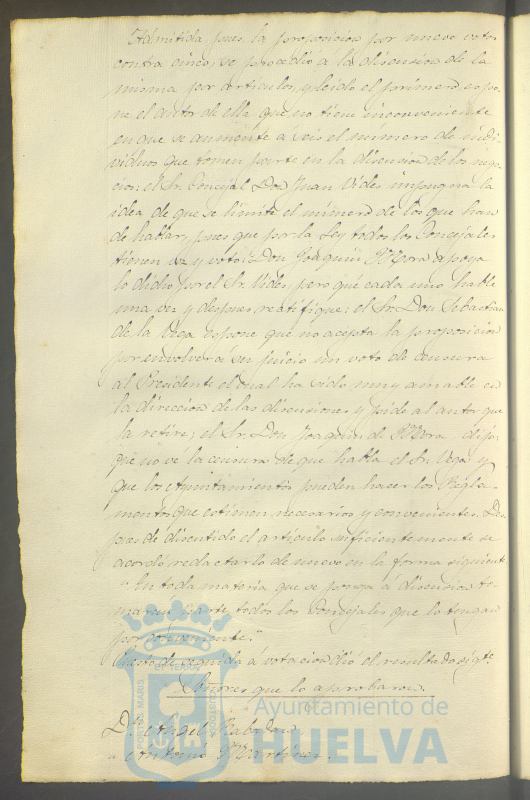 Admitida pues la proposicion por nueve votos
contra cinco, se procedió a la discusion de la
misma por articulos, y leido el primero espo-
ne el autor de ella que no tiene inconveniente
en que se aumente á seis el número de indi-
viduos que tomen parte en la discusion de los nego-
cios: el Sr. Concejal Don Juan Vides impugna la
idea de que se limite el número de los que han
de hablar, pues que por la Ley todos los Concejales
tienen voz y voto: Don Joaquin Mora apoya
lo dicho por el Sr. Vides, pero que cada uno hable
una vez y despues rectifique: el Sr. Don Sebastian
de la Vega espone que no acepta la proposicion
por envolver a su juicio un voto de censura
al Presidente el cual ha sido muy amable en
la direccion de las discusiones y pide al autor que
la retire; el Sr. Don Joaquin de Mora dijo
que no vé la censura de que habla el Sr. Vega y
que los Ayuntamientos pueden hacer los Regla-
mentos que estimen necesarios y convenientes. Des-
pues de discutido el articulo suficientemente se
acordó redactarlo de nuevo en la forma siguiente
"En toda materia que se ponga á discusion to-
marán parte todos los Concejales que lo tengan
por conveniente."
Puesto de seguida á votacion dió el resultado sigte.
Señores que lo aprobaron.
Dn. Angel Rabadan
" Antonio Martinez.
Ayuntamiento de
HUELVA